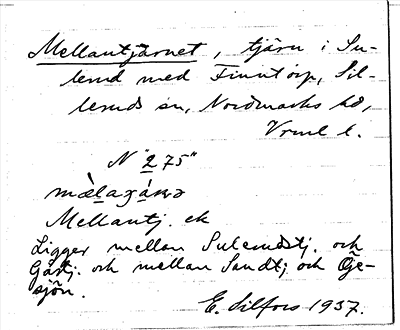 Mellantjärnet, tjärn i Su-
lerud med Finntorp, Sil-
leruds sn, Nordmarks hd,
Vrml l.
N "275"
Mellantj. ek
Ligger mellan Sulerudstj. och
Gåstj. och mellan Sandtj och Öje-
sjön.
E. Silfors 1937.